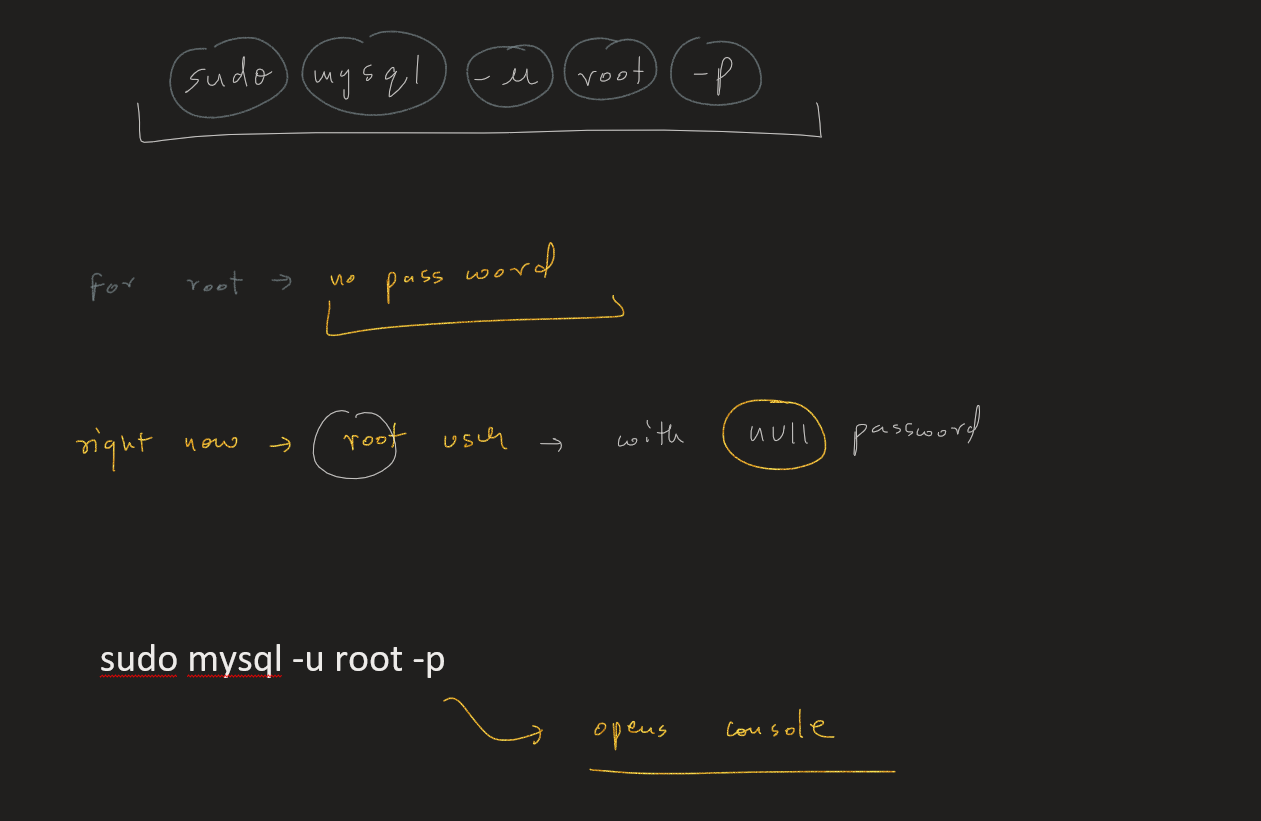 sudo mysql -u root -p
for root → no pass word
right now → root user → with null password
sudo mysql -u root -p
opens console